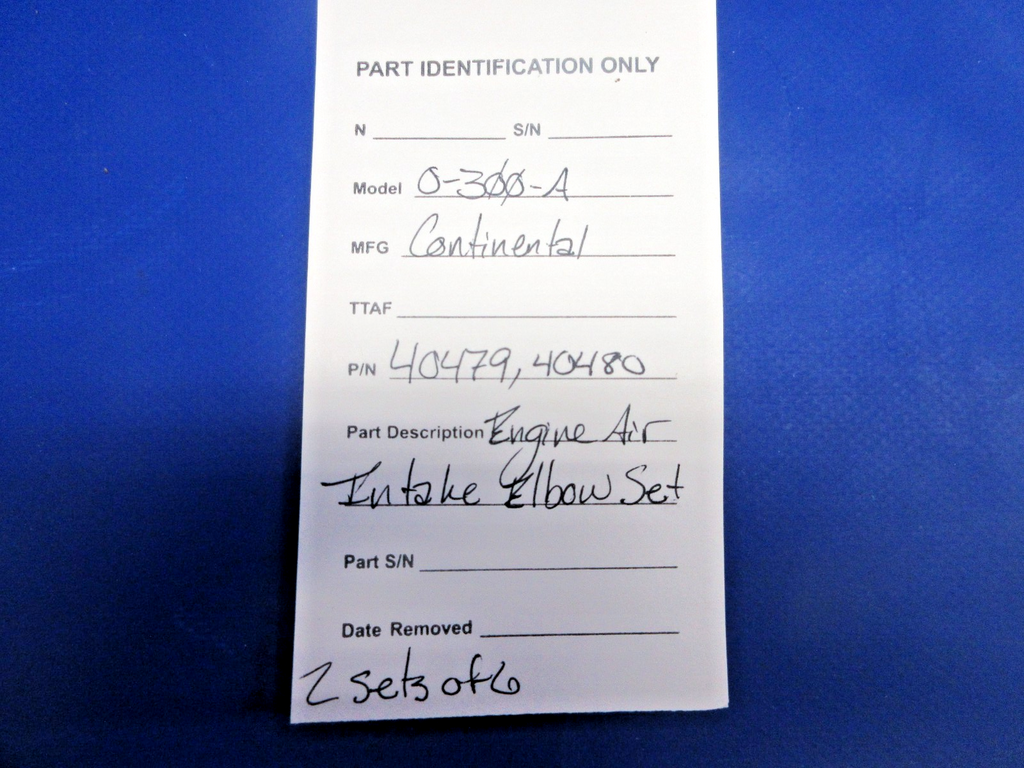 PART IDENTIFICATION ONLY
N S/N
Model O-300-A
MFG Continental
TTAF
P/N 40479, 40480
Part Description Engine Air
Intake Elbow Set
Part S/N
Date Removed
2 sets of 6